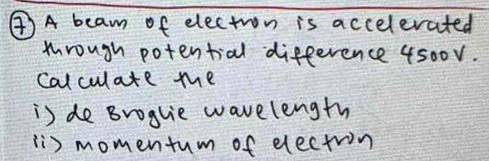 ⑦ A beam of electron is accelerated
through potential difference 4500V.
Calculate the
i) de Broglie wavelength
ii) momentum of electron